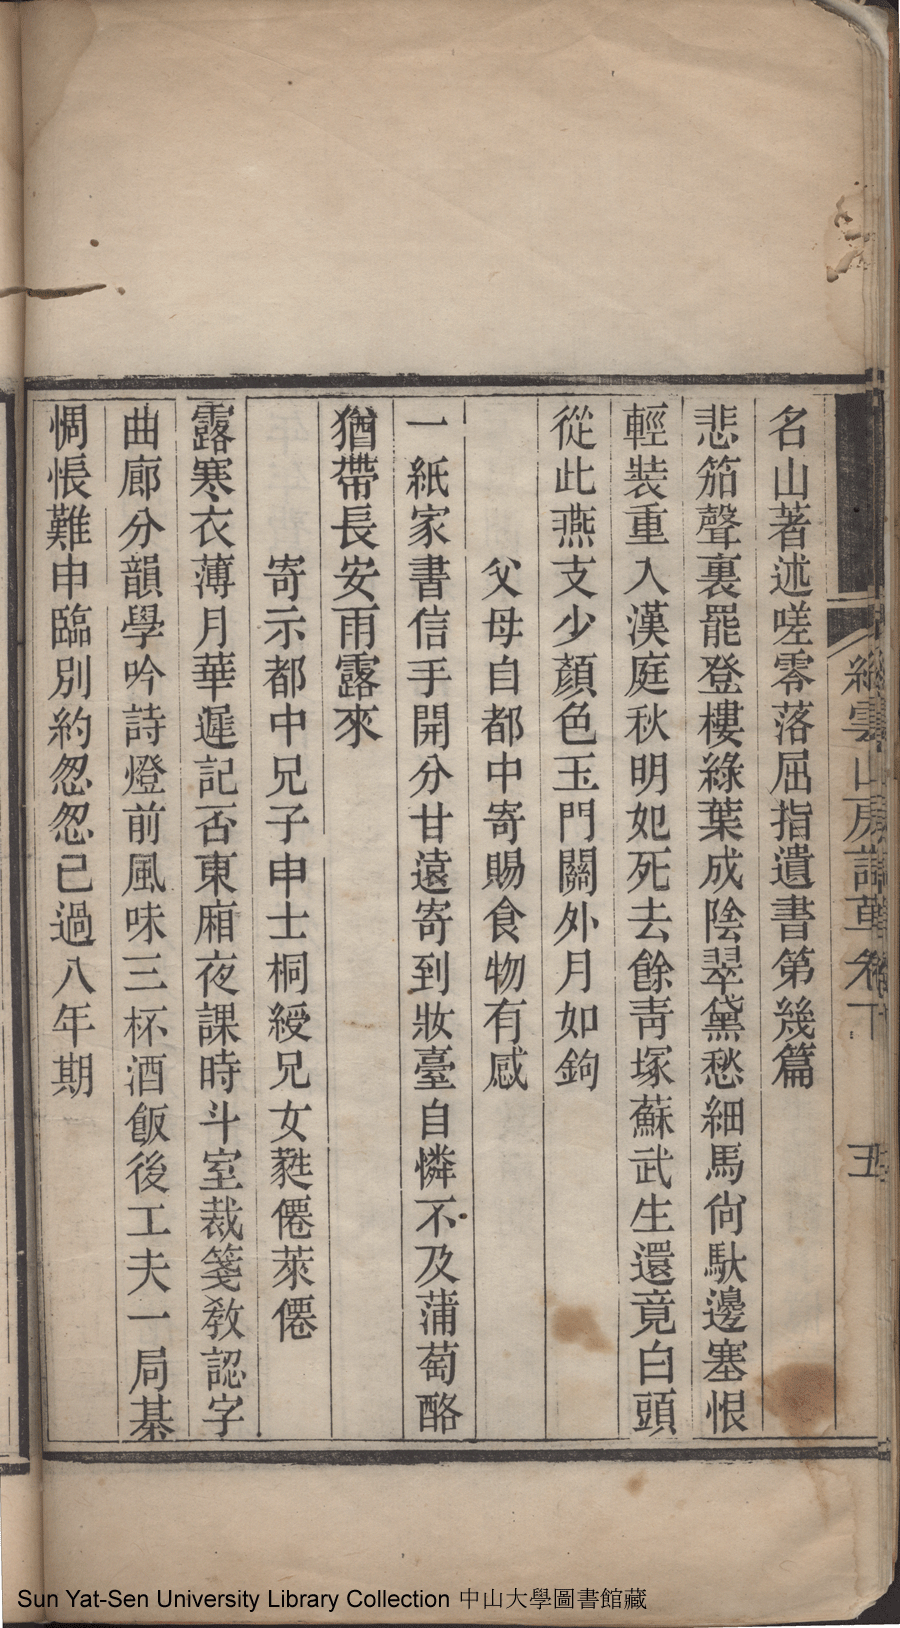 名山著述嗟零落屈指遺書第幾篇
悲笳聲裏罷登樓綠葉成陰翠黛愁細馬尙馱邊塞恨
輕裝重入漢庭秋明妃死去餘靑塚蘇武生還竟白頭
從此燕支少顏色玉門關外月如鉤
父母自都中寄賜食物有感
一紙家書信手開分甘遠寄到妝臺自憐不及蒲萄酪
猶帶長安雨露來
寄示都中兄子申士桐綬兄女蕤僊萊僊
露寒衣薄月華遲記否東廂夜課時斗室裁箋敎認字
曲廊分韻學吟詩燈前風味三杯酒飯後工夫一局棊
惆悵難申臨別約忽忽已過八年期
雲山房詩草卷下
五
Sun Yat-Sen University Library Collection 中山大學圖書館藏